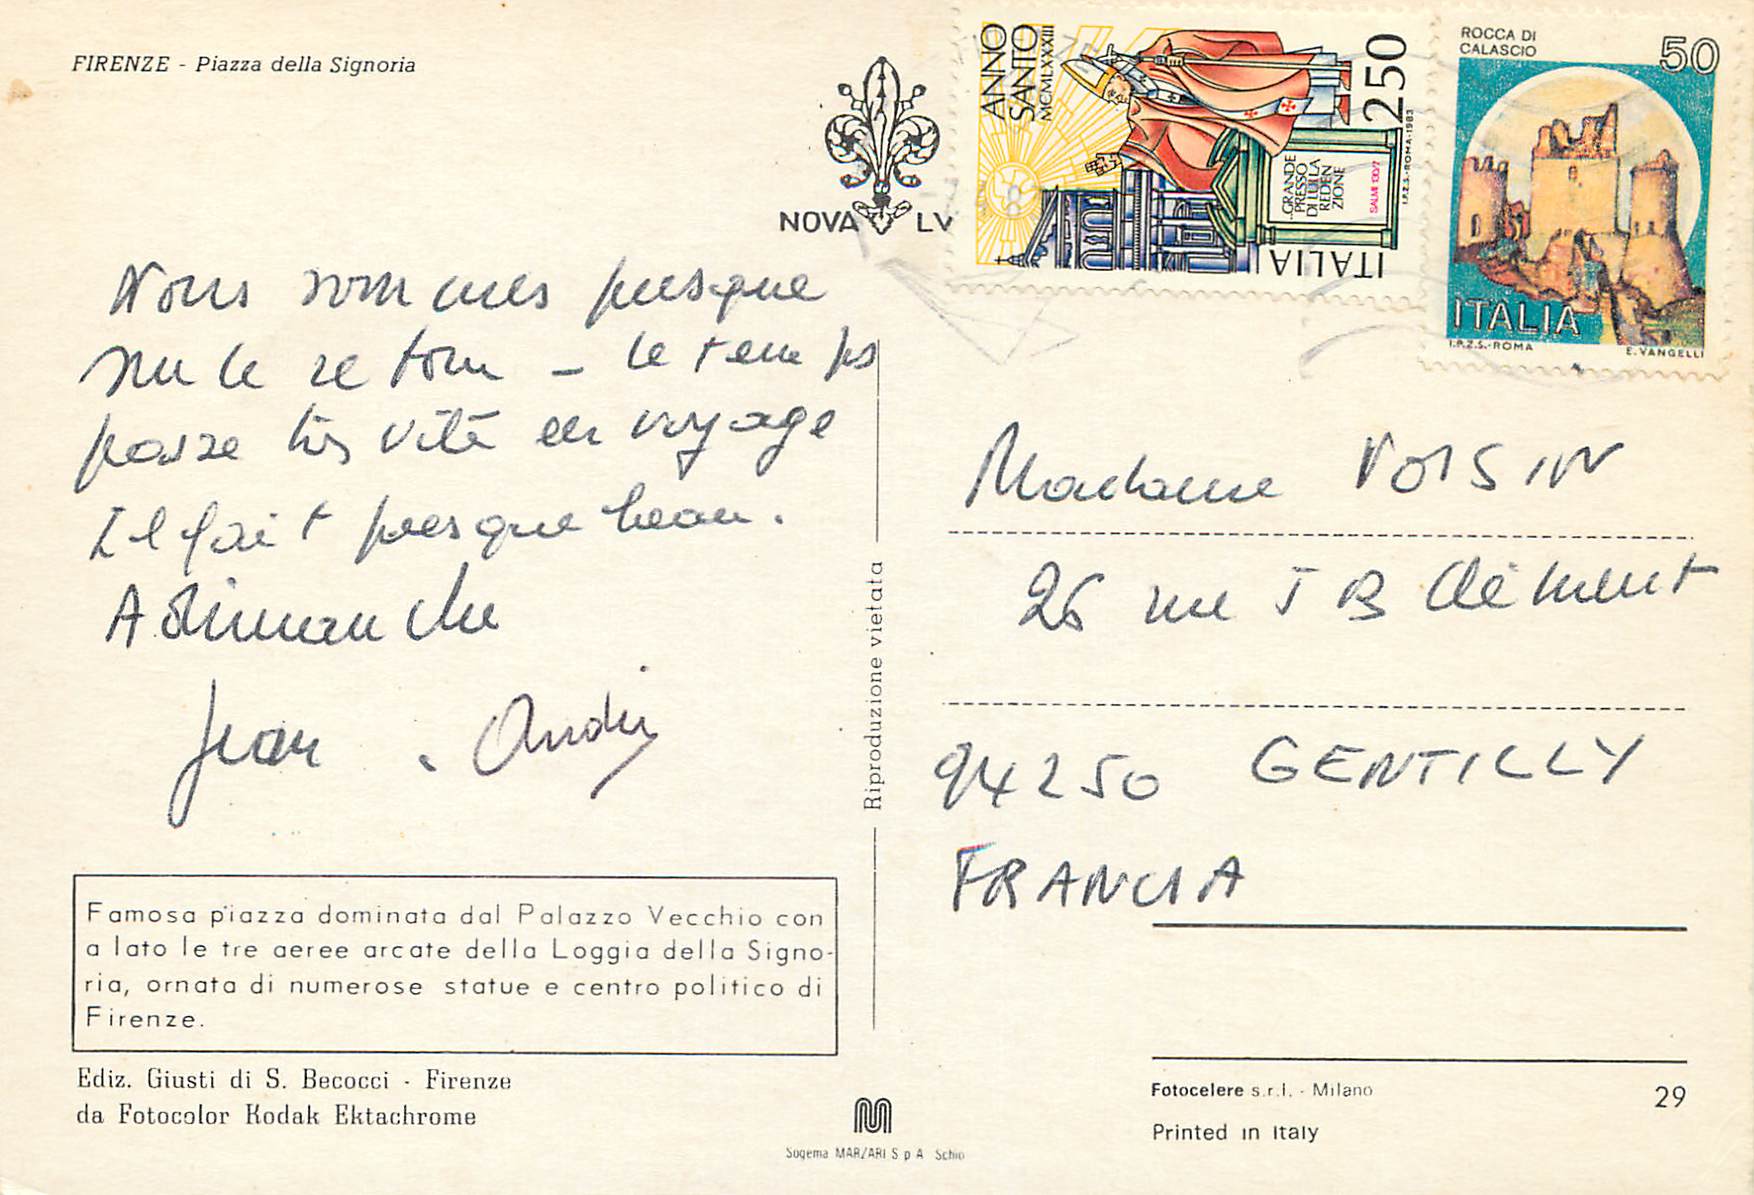 FIRENZE - Piazza della Signoria
NOVA LV
ANNO
SANTO
MCMLXXXIII
250
..GRANDE
PRESSO
DI LUI LA
REDEN
ZIONE
SALMI 130/7
I.P.Z.S.-ROMA-1983
ITALIA
ROCCA DI
CALASCIO
50
ITALIA
I.P.Z.S.-ROMA E. VANGELLI
Nous sommes presque
sur le retour – le temps
passe très vite en voyage
Il fait presque beau.
A dimanche
Jean . André
Riproduzione vietata
Madame VOISIN
26 rue J B Clément
94250 GENTILLY
FRANCIA
Famosa piazza dominata dal Palazzo Vecchio con
a lato le tre aeree arcate della Loggia della Signo-
ria, ornata di numerose statue e centro politico di
Firenze.
Ediz. Giusti di S. Becocci - Firenze
da Fotocolor Kodak Ektachrome
Sogema MARZARI S p A Schio
Fotocelere s.r.l. - Milano
29
Printed in Italy